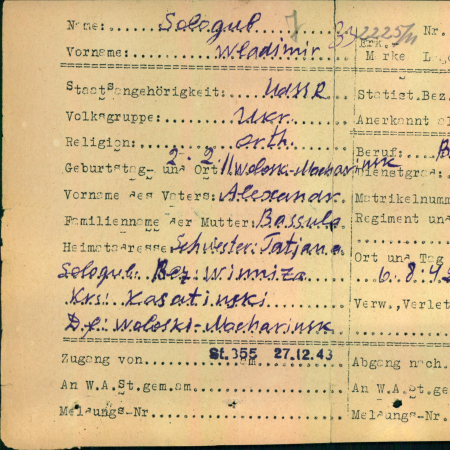 Name: Sologub
Vorname: Wladimir
Staatsangehörigkeit: UdSSR
Volksgruppe: Ukr.
Religion: orth.
Geburtstag und Ort: 2. 2. Woloski-Macharinsk
Vorname des Vaters: Alexandr.
Familienname der Mutter: Bassula
Heimatadresse: Schwester: Tatjana
Sologub. Bez: Winniza
Krs: Kasatinski
D.f: Woloski-Macharinsk
Zugang von St. 355 am 27.12.43
An W.A.St.gem.am
Meldungs-Nr
Nr.
Erk.
Marke
Statist.Bez.
Anerkannt al
Beruf:
Dienstgrad:
Matrikelnumm
Regiment und
Ort und Tag
6.8.42
Verw.,Verlet
Abgang nach
An W.A.St.ge
Meldungs-Nr.